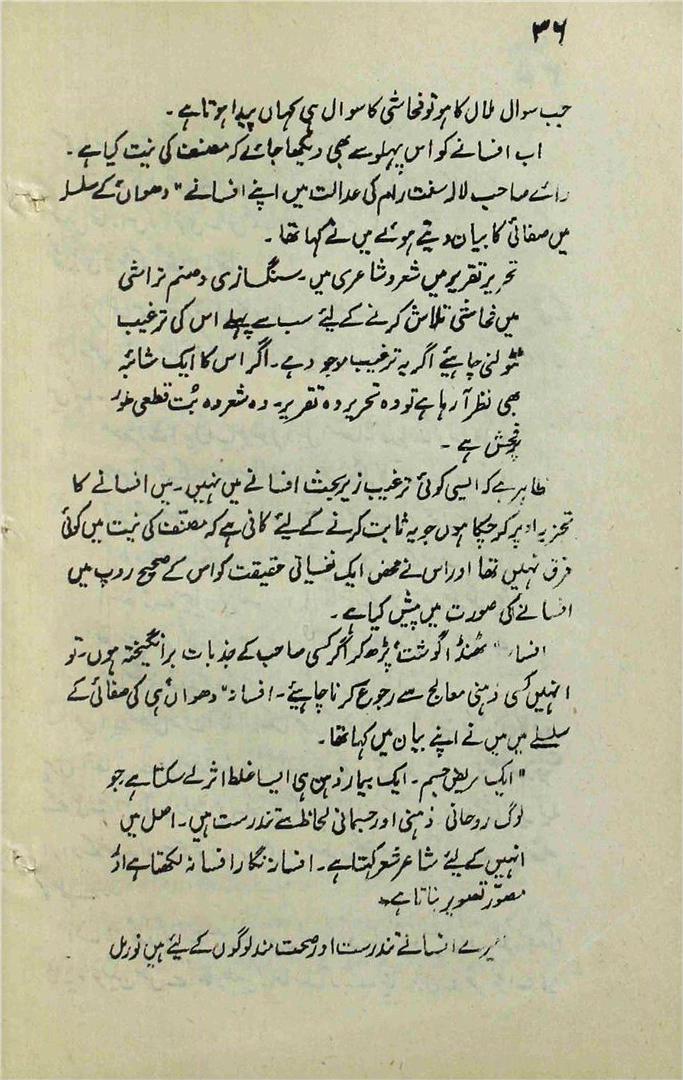 ۳۶
جب سوال ملال کا ہو تو فحاشی کا سوال ہی کہاں پیدا ہوتا ہے۔
اب افسانے کو اس پہلو سے بھی دیکھا جائے کہ مصنف کی نیت کیا ہے۔
رائے صاحب لالہ سنت رام کی عدالت میں اپنے افسانے "دھواں" کے سلسلہ
میں صفائی کا بیان دیتے ہوئے میں نے کہا تھا۔
تحریر تقریر میں شعر و شاعری میں۔ سنگسازی و صنم تراشی
میں فحاشی تلاش کرنے کے لیئے سب سے پہلے اس کی ترغیب
ٹٹولنی چاہیئے اگر یہ ترغیب موجود ہے۔ اگر اس کا ایک شائبہ
بھی نظر آ رہا ہے تو وہ تحریر وہ تقریر۔ وہ شعر وہ بُت قطعی طور
پر فحش ہے۔
ظاہر ہے کہ ایسی کوئی ترغیب زیر بحث افسانے میں نہیں۔ میں افسانے کا
تجزیہ اوپر کر چکا ہوں جو یہ ثابت کرنے کے لیئے کافی ہے کہ مصنّف کی نیت میں کوئی
فرق نہیں تھا اور اس نے محض ایک نفسیاتی حقیقت کو اس کے صحیح روپ میں
افسانے کی صورت میں پیش کیا ہے۔
افسانہ "ٹھنڈا گوشت" پڑھ کر اگر کسی صاحب کے جذبات برانگیختہ ہوں۔ تو
انہیں کسی ذہنی معالج سے رجوع کرنا چاہیئے۔ افسانہ "دھواں" ہی کی صفائی کے
سلسلے میں میں نے اپنے بیان میں کہا تھا۔
"ایک مریض جسم۔ ایک بیمار ذہن ہی ایسا غلط اثر لے سکتا ہے جو
لوگ روحانی ذہنی اور جسمانی لحاظ سے تندرست ہیں۔ اصل میں
انہیں کے لیئے شاعر شعر کہتا ہے۔ افسانہ نگار افسانہ لکھتا ہے اور
مصوّر تصویر بناتا ہے۔
میرے افسانے تندرست اور صحت مند لوگوں کے لیئے ہیں نورمل